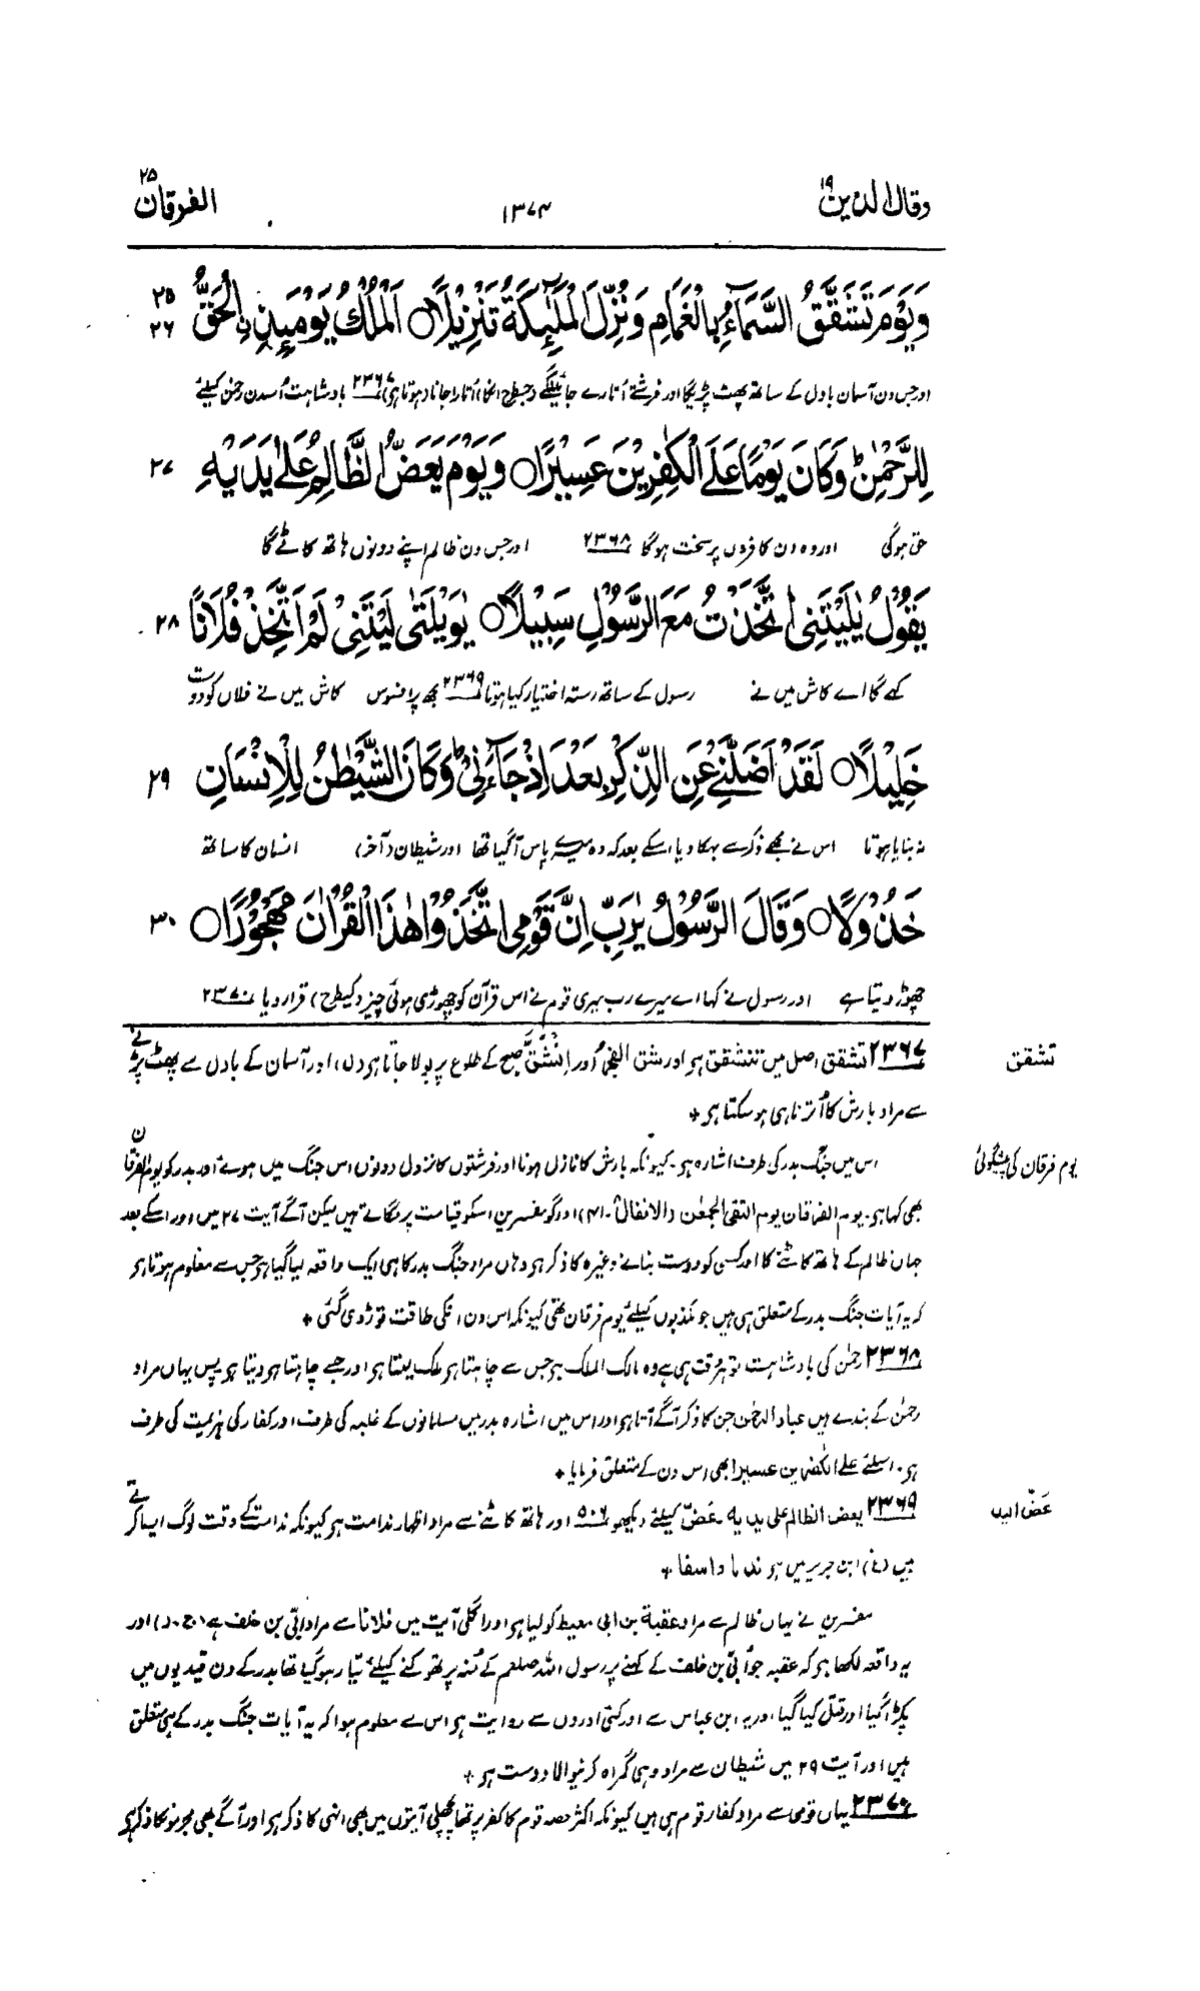 وقال الذین ۱۹ ۱۳۷۴ الفرقان ۲۵
وَيَوْمَ تَشَقَّقُ السَّمَآءُ بِالْغَمَامِ وَنُزِّلَ الْمَلٰٓئِكَةُ تَنْزِيْلًا○ اَلْمُلْكُ يَوْمَئِذِنِ الْحَقُّ ۲۵ ۲۶
اور جس دن آسمان بادل کے ساتھ پھٹ پڑیگا اور فرشتے اُتارے جائینگے (جسطرح انکا) اُتارا جانا (ہوتا ہی) ۲۳۶۷ بادشاہت اُسدن رحمٰن کیلئے
لِلرَّحْمٰنِ ؕ وَكَانَ يَوْمًا عَلَى الْكٰفِرِيْنَ عَسِيْرًا○ وَيَوْمَ يَعَضُّ الظَّالِمُ عَلٰى يَدَيْهِ ۲۷
حق ہوگی اور وہ دن کافروں پر سخت ہوگا ۲۳۶۸ اور جس دن ظالم اپنے دونوں ہاتھ کاٹے گا
يَقُوْلُ يٰلَيْتَنِى اتَّخَذْتُ مَعَ الرَّسُوْلِ سَبِيْلًا○ يٰوَيْلَتٰى لَيْتَنِىْ لَمْ اَتَّخِذْ فُلَانًا ۲۸
کہے گا اے کاش میں نے رسول کے ساتھ رستہ اختیار کیا ہوتا ۲۳۶۹ مجھ پر افسوس کاش میں نے فلاں کو دوست
خَلِيْلًا○ لَقَدْ اَضَلَّنِىْ عَنِ الذِّكْرِ بَعْدَ اِذْ جَآءَنِىْ ؕ وَكَانَ الشَّيْطٰنُ لِلْاِنْسَانِ ۲۹
نہ بنایا ہوتا اس نے مجھے ذکر سے بہکا دیا اسکے بعد کہ وہ میرے پاس آگیا تھا اور شیطان (آخر) انسان کا ساتھ
خَذُوْلًا○ وَقَالَ الرَّسُوْلُ يٰرَبِّ اِنَّ قَوْمِى اتَّخَذُوْا هٰذَا الْقُرْاٰنَ مَهْجُوْرًا○ ۳۰
چھوڑ دیتا ہے اور رسول نے کہا اے میرے رب میری قوم نے اس قرآن کو چھوڑی ہوئی چیز (کیطرح) قرار دیا ۲۳۷۰
تشقق
۲۳۶۷ تشقق اصل میں تتشقق ہی اور شق الفجرُ اور اِنْشَقَّ صبح کے طلوع پر بولا جاتا ہی (ل) اور آسمان کے بادل سے پھٹ پڑنے
سے مراد بارش کا اُترنا ہی ہو سکتا ہو *
یوم فرقان کی پیشگوئی
اس میں جنگ بدر کی طرف اشارہ ہو۔ کیونکہ بارش کا نازل ہونا اور فرشتوں کا نزول دونوں اس جنگ میں ہوئے اور بدر کو یوم الفرقان
بھی کہا ہو۔ یوم الفرقان یوم التقی الجمعٰن (الانفال۔ ۴۱) اور گو مفسرین اسکو قیامت پر لگاتے ہیں لیکن آگے آیت ۲۷ میں اور اسکے بعد
جہاں ظالم کے ہاتھ کاٹنے کا اور کسی کو دوست بنانے وغیرہ کا ذکر ہو وہاں مراد جنگ بدر کا ہی ایک واقعہ لیا گیا ہو جس سے معلوم ہوتا ہو
کہ یہ آیات جنگ بدر کے متعلق ہی ہیں جو مکذبوں کیلئے یوم فرقان تھی کیونکہ اس دن انکی طاقت توڑ دی گئی *
۲۳۶۸ رحمٰن کی بادشاہت تو ہر وقت ہی ہے وہ مالک الملک ہو جس سے چاہتا ہو ملک لیتا ہو اور جسے چاہتا ہو دیتا ہو پس یہاں مراد
رحمٰن کے بندے ہیں عباد الرحمٰن جن کا ذکر آگے آتا ہو اور اس میں اشارہ بدر میں مسلمانوں کے غلبہ کی طرف اور کفار کی ہزیمت کی طرف
ہو۔ اسلئے علی الکٰفرین عسیرا بھی اس دن کے متعلق فرمایا *
عَضّ الید
۲۳۶۹ یعض الظالم علی یدیہ۔ عَضّ کیلئے دیکھو ۵۰۶ اور ہاتھ کاٹنے سے مراد اظہار ندامت ہو کیونکہ ندامت کے وقت لوگ ایسا کرتے
ہیں (غ) ابن جریر میں ہو ندما و اسفا *
مفسرین نے یہاں ظالم سے مراد عقبۃ بن ابی معیط کو لیا ہو اور اگلی آیت میں فلانا سے مراد اُبیّ بن خلف ہے (ج۔ د) اور
یہ واقعہ لکھا ہو کہ عقبہ جو اُبیّ بن خلف کے کہنے پر رسول اللہ صلعم کے مُنہ پر تھوکنے کیلئے تیار ہوگیا تھا بدر کے دن قیدیوں میں
پکڑا گیا اور قتل کیا گیا، اور یہ ابن عباس سے اور کئی اوروں سے روایت ہو اس سے معلوم ہوا کہ یہ آیات جنگ بدر کے ہی متعلق
ہیں اور آیت ۲۹ میں شیطان سے مراد وہی گمراہ کرنیوالا دوست ہو *
۲۳۷۰ یہاں قومی سے مراد کفار قوم ہی ہیں کیونکہ اکثر حصہ قوم کا کفر پر تھا پچھلی آیتوں میں بھی انہی کا ذکر ہو اور آگے بھی مجرموں کا ذکر ہی